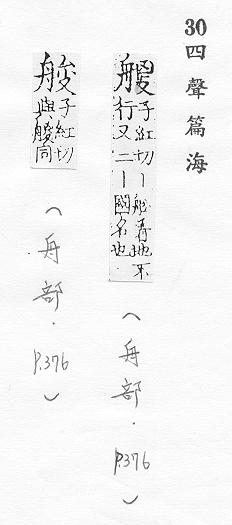 30四聲篇海
艐子紅切丨船着地不
行又二丨國名也
（舟部．P.376）
子紅切
與艐同
（舟部．P.376）